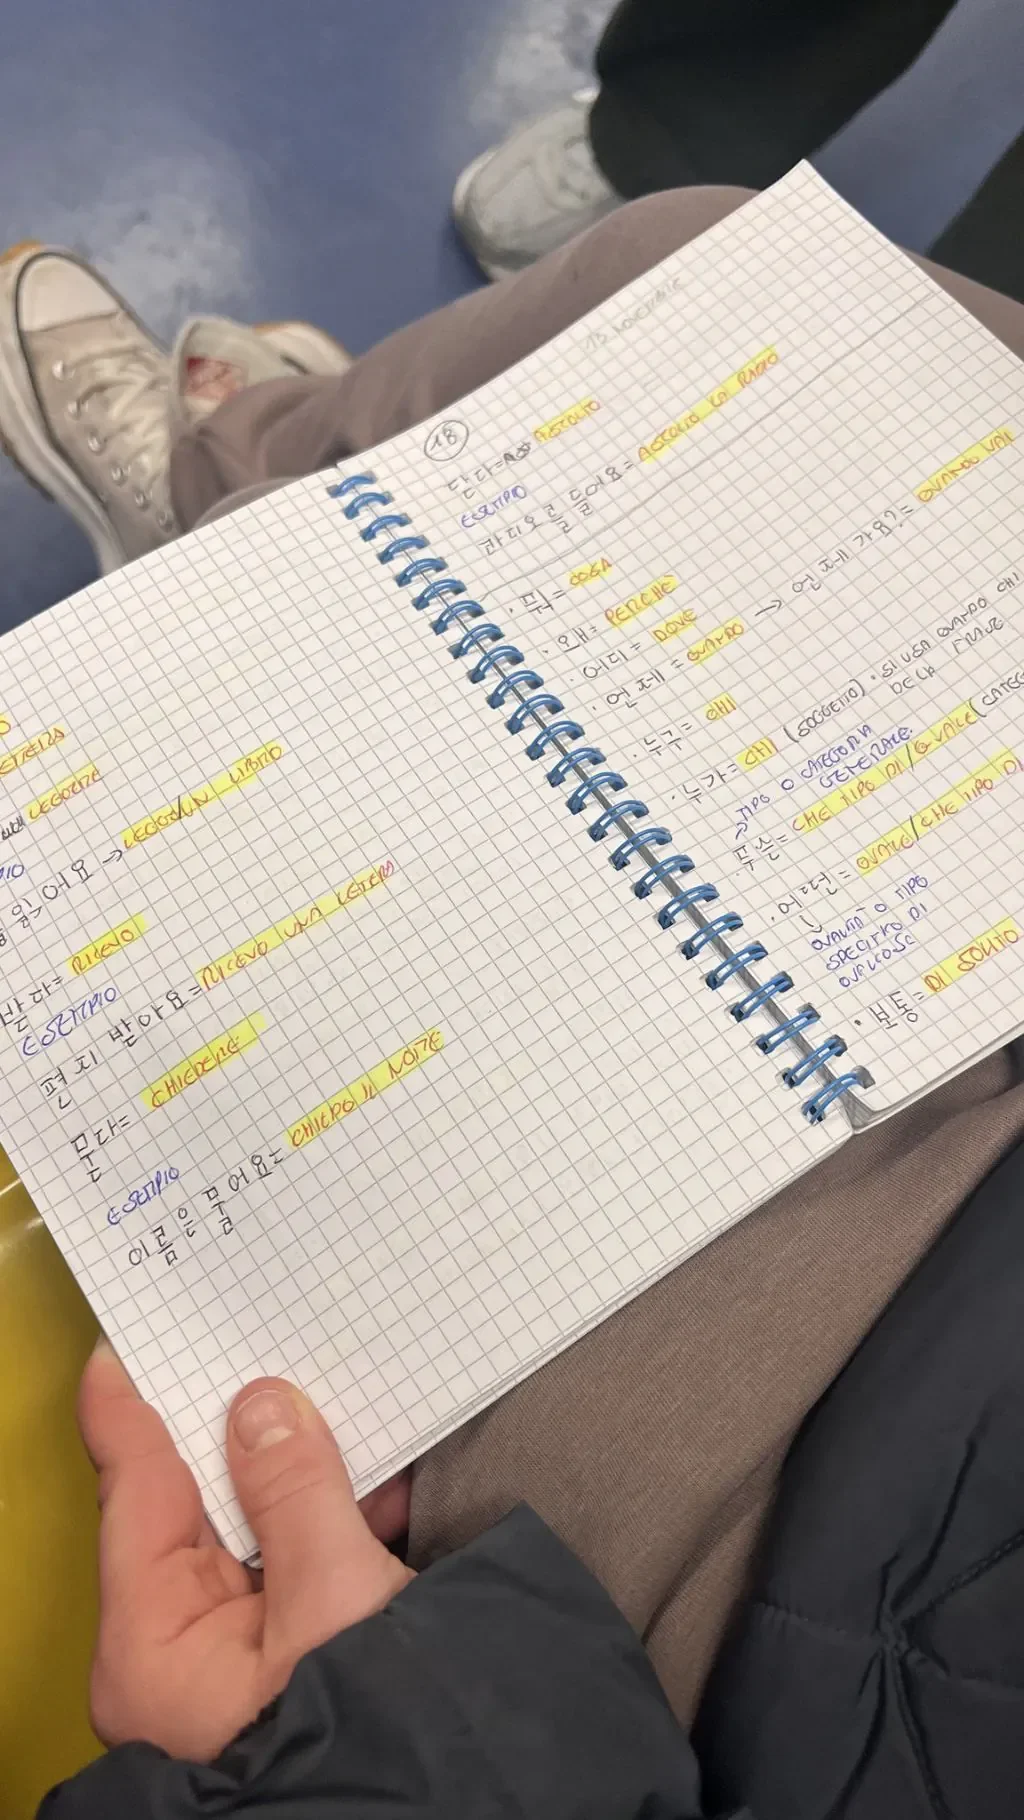 LEGGERE
읽어요 → LEGGO/UN LIBRO
받다= RICEVO
ESEMPIO
편지 받아요= RICEVO UNA LETTERA
묻다= CHIEDERE
ESEMPIO
이름은 묻어요= CHIEDO IL NOME
18
듣다= ASCOLTO
ESEMPIO
라디오를 들어요= ASCOLTO LA RADIO
· 뭐= COSA
· 왜= PERCHÈ
· 어디= DOVE
· 언제= QUANDO → 언제 가요?= QUANDO VAI
· 누구= CHI
· 누가= CHI (SOGGETTO) · SI USA QUANDO CHI
DELLA FRASE
→ TIPO O CATEGORIA
GENERALE
· 무슨= CHE TIPO DI/QUALE (CATEG
· 어떤= QUALE/CHE TIPO DI
QUALITÀ O TIPO
SPECIFICO DI
QUALCOSA
· 보통= DI SOLITO